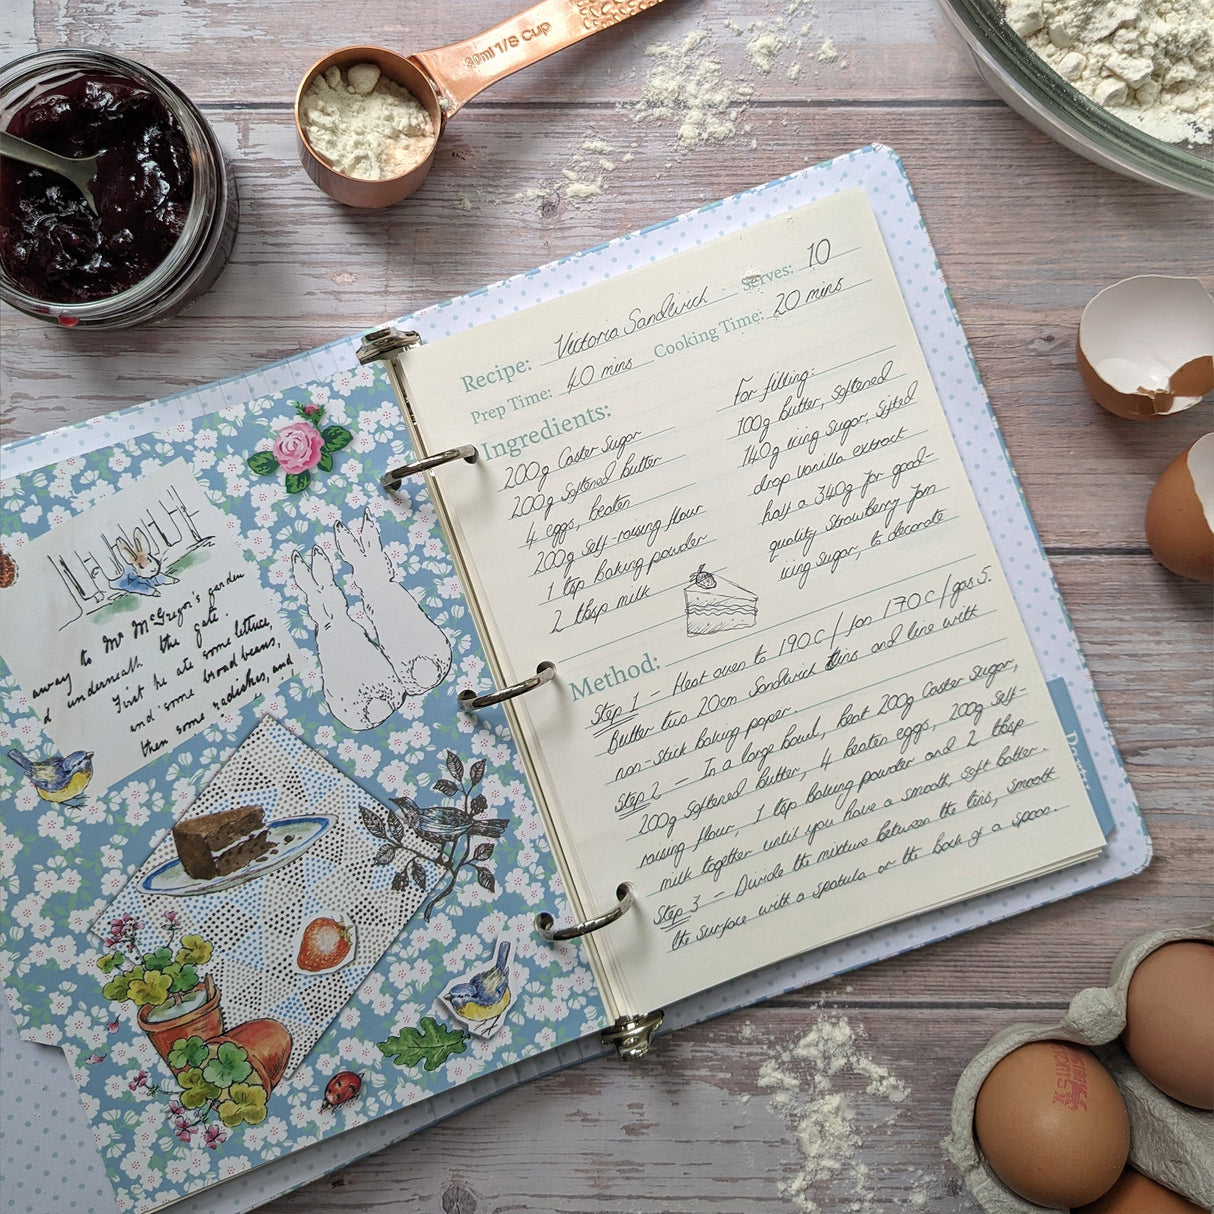 30ml 1/8 Cup
Recipe: Victoria Sandwich Serves: 10
Prep Time: 40 mins Cooking Time: 20 mins
Ingredients:
200g Caster Sugar
200g Softened Butter
4 eggs, beaten
200g self-raising flour
1 tsp baking powder
2 tbsp milk
For filling:
100g butter, softened
140g icing sugar, sifted
drop vanilla extract
half a 340g jar good-
quality strawberry jam
icing sugar, to decorate
Method:
Step 1 - Heat oven to 190C / fan 170C / gas 5.
Butter two 20cm Sandwich tins and line with
non-stick baking paper.
Step 2 - In a large bowl, beat 200g Caster Sugar,
200g Softened Butter, 4 beaten eggs, 200g Self-
raising flour, 1 tsp baking powder and 2 tbsp
milk together until you have a smooth, soft batter.
Step 3 - Divide the mixture between the tins, smooth
the surface with a spatula or the back of a spoon.
to Mr McGregor's garden
away underneath the gate.
First he ate some lettuce,
and some broad beans,
then some radishes, and